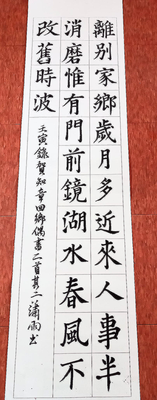 離別家鄉歲月多近來人事半
消磨惟有門前鏡湖水春風不
改舊時波
壬寅錄賀知章回鄉偶書二首其二瀟雨书